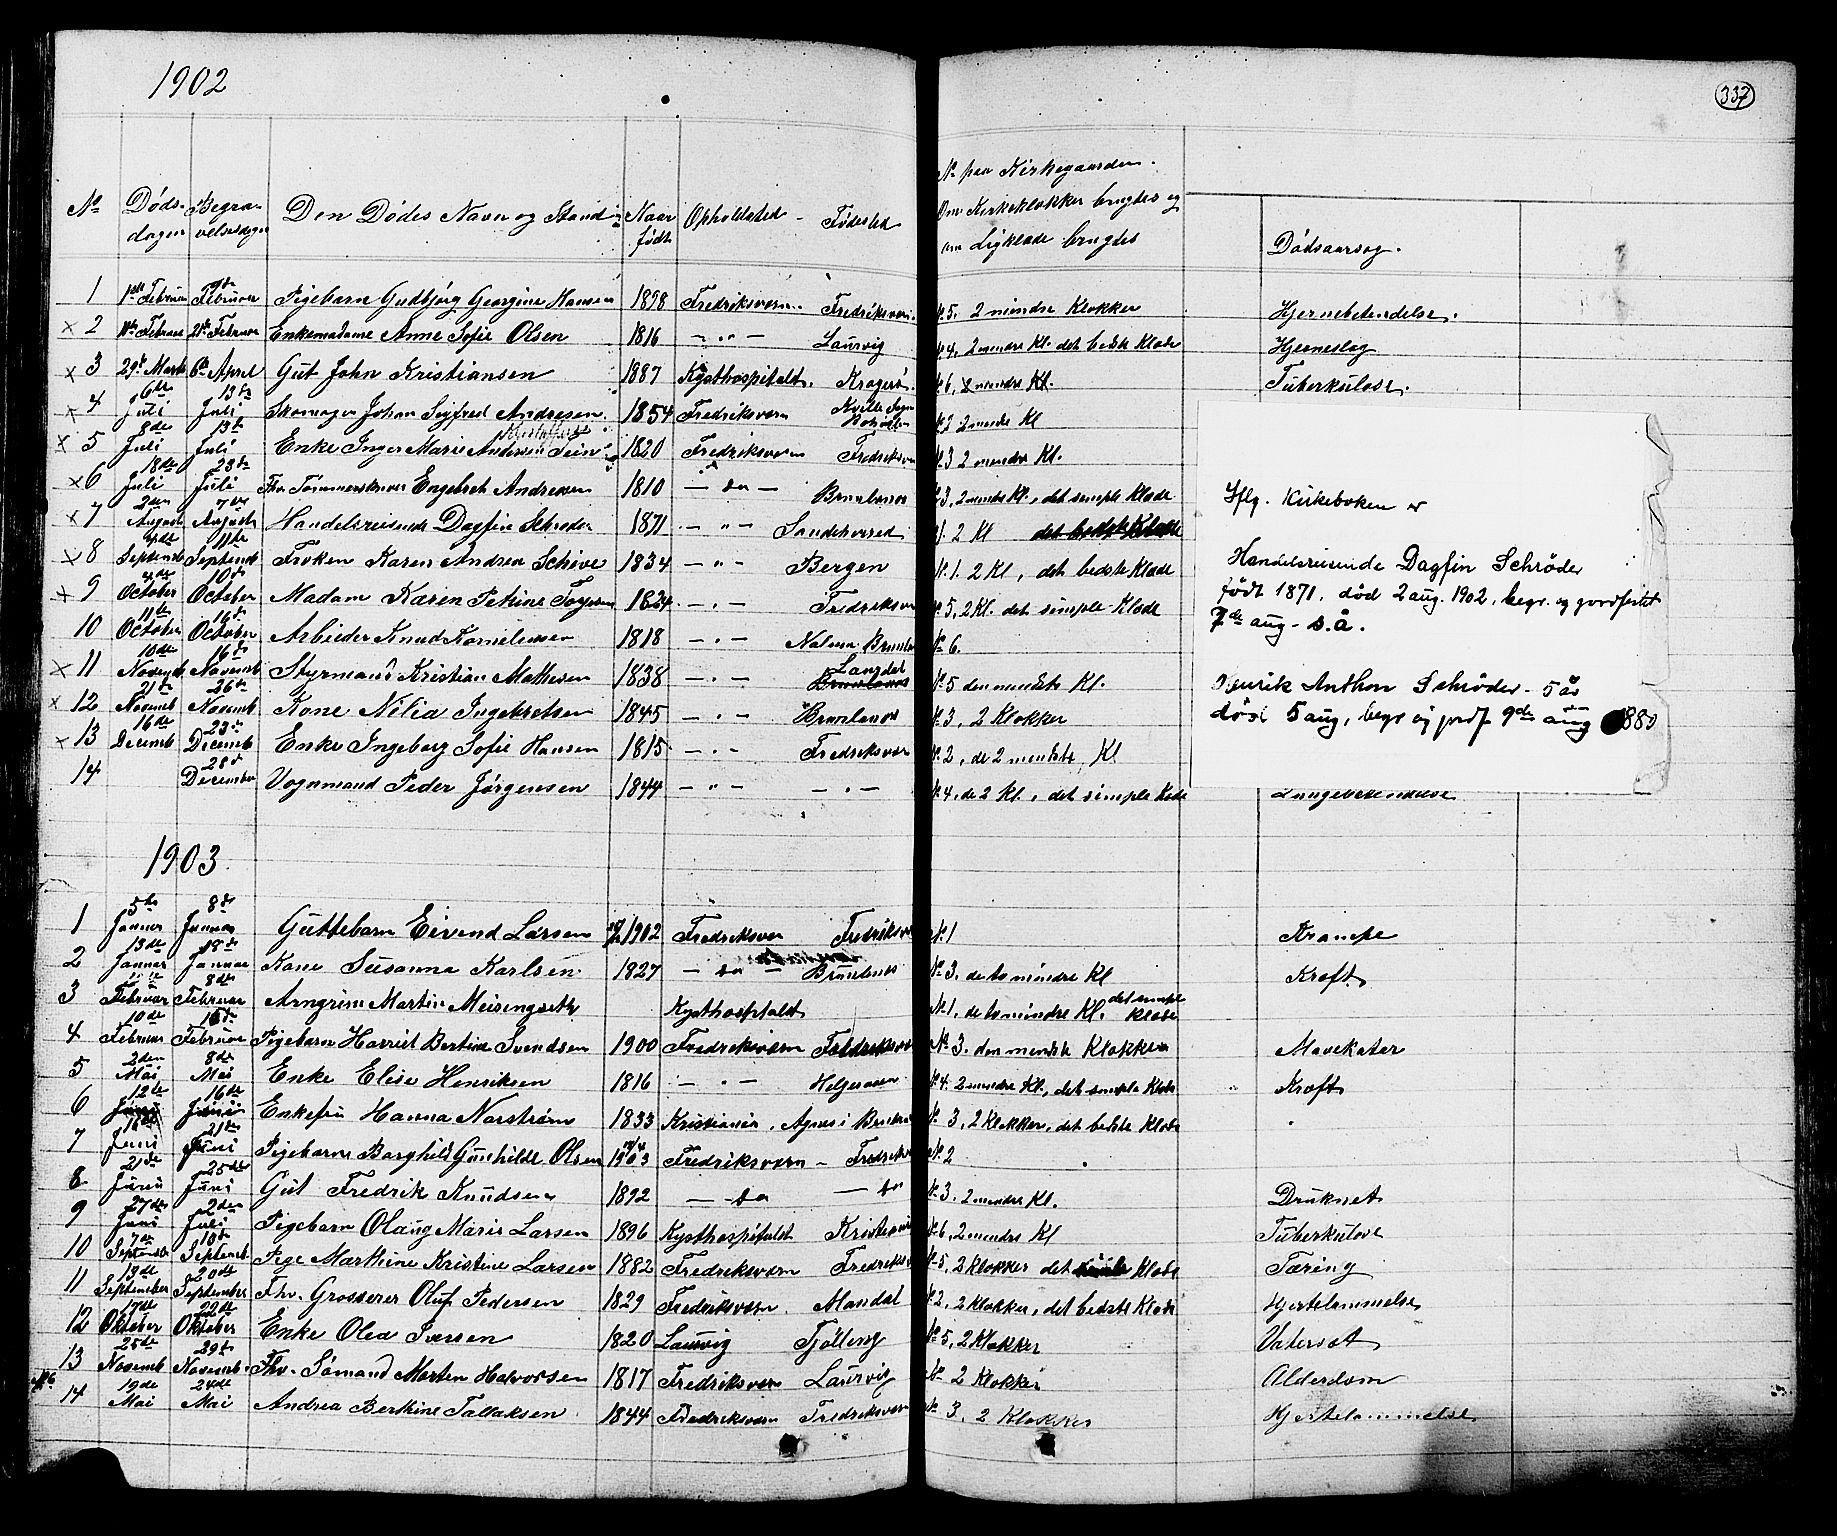 1902
337
No Dødsdagen Begravelsesdagen Den Dødes Navn og Stand Naar født Opholdsted - Fødested No paa Kirkegaarden. Om Kirkeklokker brugtes og om Ligklæde brugtes Dødsaarsag.
1 1ste Februar 9de Februar Pigebarn Gudbjørg Georgine Hansen 1898 Fredriksværn. Fredriksværn. No 5. 2 mindre Klokker Hjernebetendelse.
x 2 Februar Februar Enkemadame Anne Sofie Olsen 1816 - " - Laurvig No 4, 2 mindre Kl. det bedste Klæde Hjerneslag
x 3 29de Marts 6te April Gut John Kristiansen 1887 Kysthospitalet. Kragerø. No 6, 2 mindre Kl. Tuberkulose.
x 4 6te Juli 13de Juli Skomager Johan Sigfred Andresen. 1854 Fredriksværn No 2 2 mindre Kl
x 5 8de Juli 13de Juli Enke Inger Marie Andersen 1820 Fredriksværn Fredriksværn No 3 2 mindre Kl.
x 6 18de Juli 28de Juli Fhv. Tømmermand Engebret Andresen 1810 - do - Brunlanes No 3, 2 mindre Kl., det simple Klæde
x 7 2den August 7de August Handelsreisende Dagfin Schrøder 1871 - " - Sandeherred 2 Kl det bedste Klæde
x 8 4de September 11te September Frøken Karen Andrea Schive 1834 - " - Bergen No. 1. 2 Kl, det bedste Klæde
x 9 4de October 10de October Madam Karen Petrine 1824 - " - Fredriksværn No 5, 2 Kl. det simple Klæde
10 11te October 16de October Arbeider Knud Korneliussen 1818 - " - No 6.
x 11 10de Novemb 16de Novemb Styrmand Kristian Mathisen 1838 - " - Langdal Brunlanes No 5 den mindste Kl.
x 12 21de Novemb 26de Novemb Kone Nilia Ingebretsen 1845 - " - Brunlanes No 3, 2 Klokker
x 13 16de Decemb 23de Decemb Enke Ingeborg Sofie Hansen 1815 - " - Fredriksværn No 2, de 2 mindste Kl
14 28de December Vognmand Peder Jørgensen 1844 - " - - " - No 4, de 2 Kl., det simple Klæde Lungebetendelse
Iflg. Kirkeboken er
Handelsreisende Dagfin Schrøder
født 1871, død 2 aug. 1902, begr. og jordfestet
7de aug. s.å.
Henrik Anthon Schrøder - 5 år
død 5 aug, begr og jordf 9de aug 1880
1903.
1 5te Januar 8de Januar Guttebarn Eivend Larsen 1902 Fredriksværn Fredriksværn No. 1 Krampe
2 13de Januar 18de Januar Kone Susanna Karlsen 1827 - do - Brunlanes No 3. de to mindre Kl Kræft
3 Februar 8de Februar Arngrim Martin Meisingseth Kysthospitalet No 1, de to mindre Kl. det simple Klæde
4 10de Februar 15de Februar Pigebarn Harriet Bertine Svendsen 1900 Fredriksværn Fredriksværn No 3. den mindste Klokke Mavekatar
5 2den Mai 8de Mai Enke Elise Henriksen 1816 - " - Helgeroen No 4. 2 mindre Kl., det simple Klæde Kræft
6 12te Juni 16de Juni Enkefru Hanna Norstrøm 1833 Kristiania. Agnes i Brunlanes No 3, 2 Klokker, det bedste Klæde
7 Juni 21de Juni Pigebarn Borghild Gunhilde Olsen 1903 Fredriksværn - Fredriksværn No. 2
8 21de Juni 25de Juni Gut Fredrik Knudsen 1892 - do - do No 3. 2 mindre Kl. Druknet
9 27de Juni 2den Juli Pigebarn Olaug Marie Larsen 1896 Kysthospitalet Kristiania No 6, 2 mindre Kl Tuberkulose
10 7de September 10de September Pige Marthine Kristine Larsen 1882 Fredriksværn Fredriksværn No 5, 2 Klokker det simple Klæde Tæring
11 September 20de September Fhv. Grosserer Oluf Pedersen 1829 Fredriksværn. Mandal No 2, 2 Klokker, det bedste Klæde Hjertelammelse
12 17de Oktober 22de Oktober Enke Olea Iversen 1820 Laurvig Tjølling No 5, 2 Klokker Vatersot
13 25de Novemb 29de Novemb. Fhv. Sømand Morten Halvorsen 1817 Fredriksværn Laurvig No 2 Klokker Alderdom
No 6 14 19de Mai 24de Mai Andrea Berthine Tallaksen 1844 Fredriksværn Fredriksværn No 3, 2 Klokker Hjertelammelse